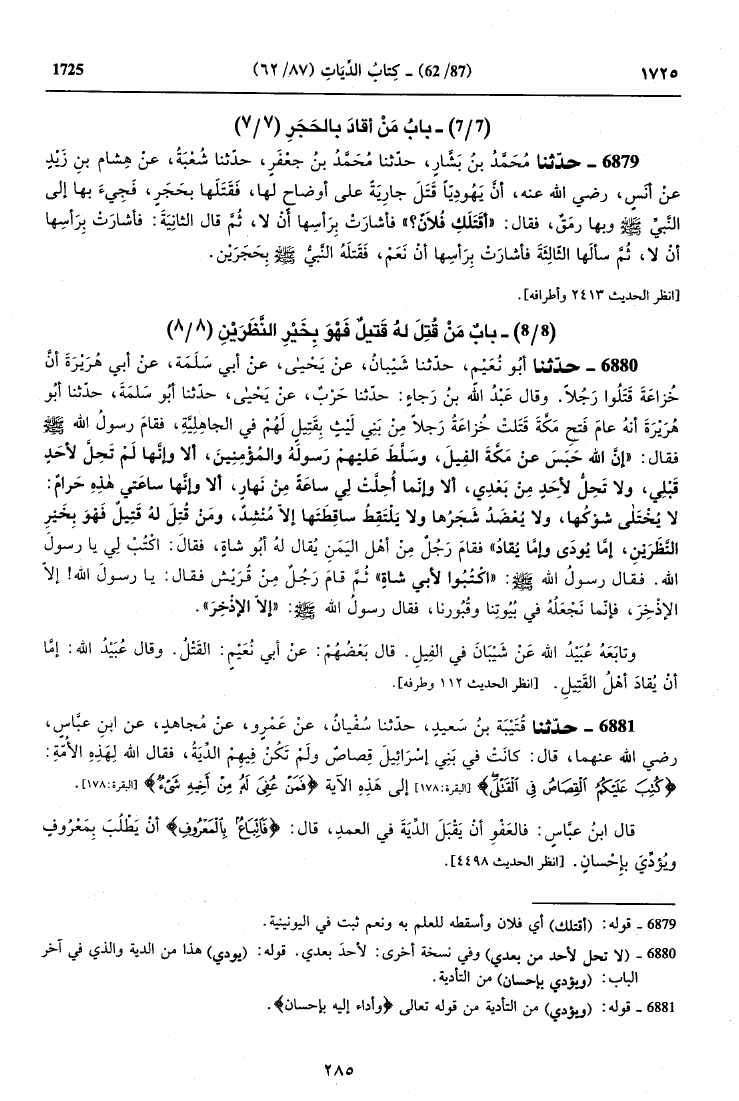 ١٧٢٥ (62/87) ـ كِتابُ الدِّيَاتِ (٦٢/٨٧) 1725
(7/7) ـ بابُ مَنْ أقادَ بالحَجَرِ (٧/٧)
6879 ـ حدّثنا مُحَمَّدُ بنُ بَشَّارٍ، حدّثنا مُحَمَّدُ بنُ جعْفَرٍ، حدّثنا شُعْبَةُ، عنْ هِشامِ بنِ زَيْدٍ
عنْ أنَسٍ، رضي الله عنه، أنَّ يَهُودِيّاً قَتَلَ جارِيَةً على أوْضاحٍ لها، فقَتَلَها بحَجَرٍ، فَجِيءَ بها إلى
النبيِّ ﷺ وبها رمَقٌ، فقال: «أقَتَلَكِ فُلانٌ؟» فأشارَتْ بِرَأسِها أنْ لا، ثُمَّ قال الثانِيَةَ: فأشارَتْ بِرَأسِها
أنْ لا، ثُمَّ سألَها الثالِثَةَ فأشارَتْ بِرَأسِها أنْ نَعَمْ، فَقَتَلَهُ النبيُّ ﷺ بِحَجَرَيْنِ.
[انظر الحديث ٢٤١٣ وأطرافه].
(8/8) ـ بابٌ مَنْ قُتِلَ لهُ قَتِيلٌ فَهْوَ بِخَيْرِ النَّظَرَيْنِ (٨/٨)
6880 ـ حدّثنا أبُو نُعَيْمٍ، حدّثنا شَيْبانُ، عنْ يَحْيىٰ، عنْ أبي سَلَمَة، عنْ أبي هُرَيْرَةَ أنَّ
خُزاعَةَ قَتَلُوا رَجُلاً. وقال عَبْدُ الله بنُ رَجاءٍ: حدّثنا حَرْبٌ، عنْ يَحْيىٰ، حدّثنا أبُو سَلمَةَ، حدّثنا أبُو
هُرَيْرَةَ أنهُ عامَ فَتحِ مَكَّةَ قَتَلتْ خُزاعَةُ رَجلاً مِنْ بَنِي لَيْثٍ بِقَتِيلٍ لَهُمْ في الجاهِلِيَّةِ، فقامَ رسولُ الله ﷺ
فقال: «إنَّ الله حَبَسَ عنْ مَكَّةَ الفِيلَ، وسَلَّطَ علَيْهِمْ رَسولَهُ والمُؤْمِنِينَ، ألا وإنَّها لَمْ تَحِلَّ لأحَدٍ
قَبْلِي، ولا تَحِلُّ لأحَدٍ مِنْ بَعْدِي، ألا وإنَّما أُحِلَّتْ لِي ساعَةً مِنْ نَهارٍ، ألا وإنَّها ساعَتي هٰذِهِ حَرامٌ:
لا يُخْتَلَى شَوْكُها، ولا يُعْضَدُ شَجَرُها ولا يَلْتَقِطُ ساقِطَتَها إلاّ مُنْشِدٌ، ومَنْ قُتِلَ لهُ قَتِيلٌ فَهْوَ بِخَيْرِ
النَّظَرَيْنِ، إمَّا يُودَى وإمَّا يُقادُ» فقامَ رَجُلٌ مِنْ أهْلِ اليَمَنِ يُقال لهُ أبُو شاةٍ، فقالَ: اكْتُبْ لِي يا رسولَ
الله. فقال رسولُ الله ﷺ: «اكْتُبُوا لأبي شاةٍ» ثُمَّ قامَ رَجُلٌ مِنْ قُرَيْشٍ فقال: يا رسولَ الله! إلاّ
الإذْخِرَ، فإنَّما نَجْعَلُهُ في بُيُوتِنا وقُبُورِنا، فقال رسولُ الله ﷺ: «إلاّ الإذْخِرَ».
وتابَعَهُ عُبَيْدُ الله عَنْ شَيْبَانَ في الفِيلِ. قال بَعْضُهُمْ: عنْ أبي نُعَيْمٍ: القَتْلُ. وقال عُبَيْدُ الله: إمَّا
أنْ يُقادَ أهْلُ القَتِيلِ. [انظر الحديث ١١٢ وطرفه].
6881 ـ حدّثنا قُتَيْبَة بنُ سَعيدٍ، حدّثنا سُفْيانُ، عنْ عَمْرٍو، عنْ مُجاهِدٍ، عن ابنِ عبَّاسٍ،
رضي الله عنهما، قال: كانَتْ في بَنِي إسْرَائِيلَ قِصاصٌ ولَمْ تَكُنْ فِيهِمْ الدِّيَةُ، فقال الله لِهَذِهِ الأُمَّةِ:
﴿كُتِبَ عَلَيْكُمُ الْقِصَاصُ فِي الْقَتْلَىۖ﴾ [البقرة: ١٧٨] إلى هَذِهِ الآية ﴿فَمَنْ عُفِيَ لَهُ مِنْ أَخِيهِ شَيْءٌ﴾ [البقرة: ١٧٨].
قال ابنُ عبَّاسٍ: فالعَفْو أنْ يَقْبَلَ الدِّيَةَ في العمدِ، قال: ﴿فَاتِّبَاعٌ بِالْمَعْرُوفِ﴾ أنْ يَطْلُبَ بِمَعْرُوفٍ
ويُؤدِّيَ بإحْسانٍ. [انظر الحديث ٤٤٩٨].
6879 ـ قوله: (أقتلك) أي فلان وأسقطه للعلم به ونعم ثبت في اليونينية.
6880 ـ (لا تحل لأحد من بعدي) وفي نسخة أخرى: لأحدَ بعدي. قوله: (يودي) هذا من الدية والذي في آخر
الباب: (ويؤدي بإحسان) من التأدية.
6881 ـ قوله: (ويؤدي) من التأدية من قوله تعالى ﴿وأداء إليه بإحسان﴾.
٢٨٥